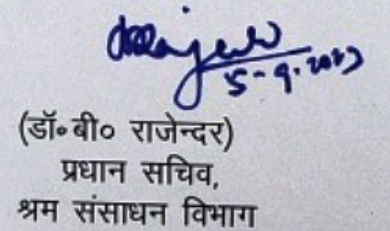 5-9-2023
(डॉ॰बी० राजेन्दर)
प्रधान सचिव,
श्रम संसाधन विभाग